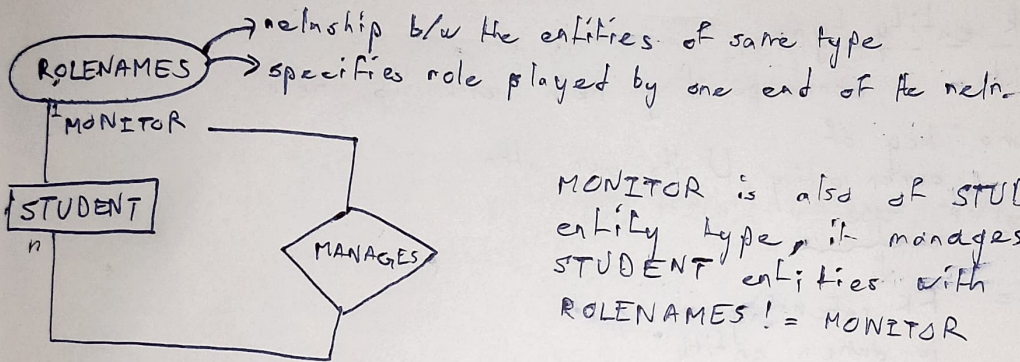 relnship b/w the entities of same type
ROLENAMES
specifies role played by one end of the reln.
1
MONITOR
STUDENT
n
MANAGES
MONITOR is also of STUD
entity type, it manages
STUDENT entities with
ROLENAMES != MONITOR